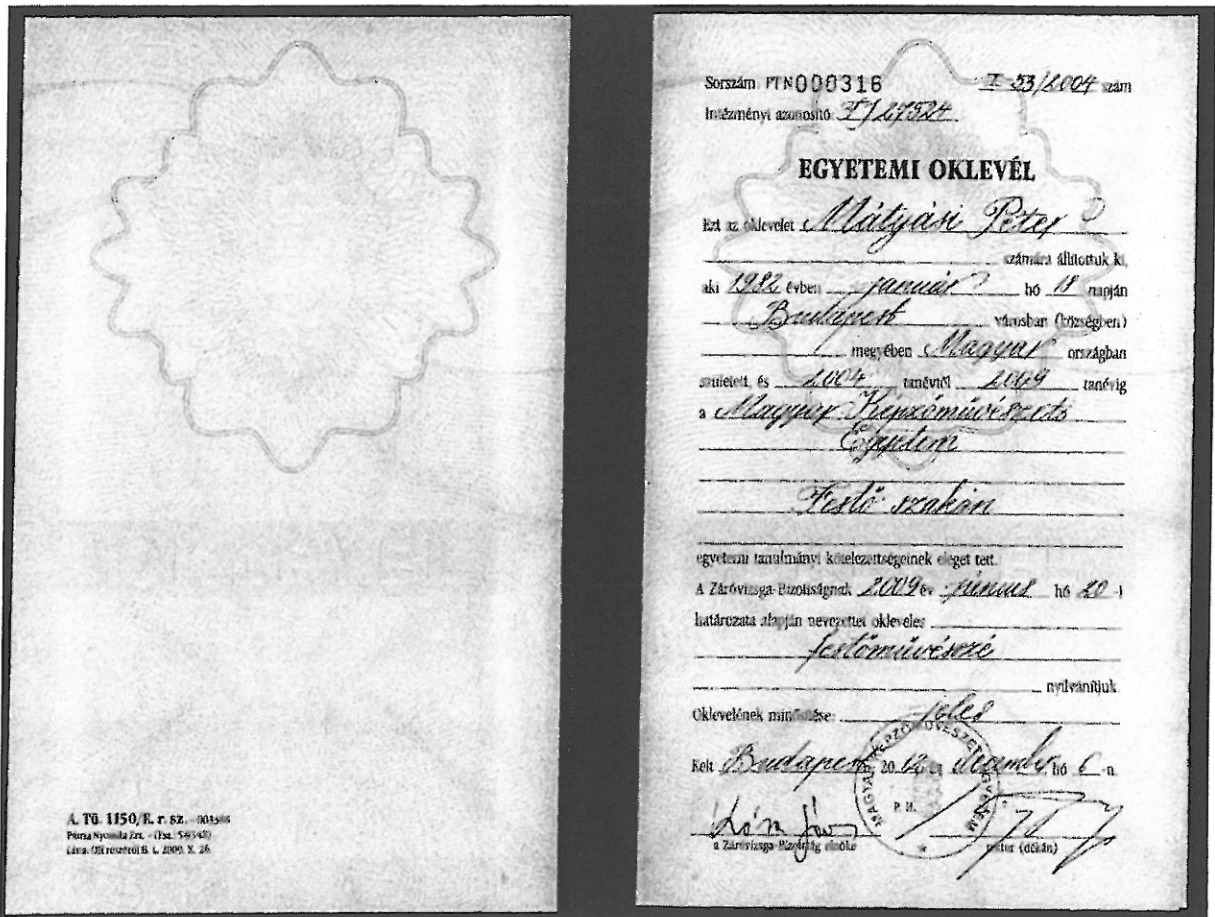 A. Tü. 1150/E. r. sz.
Sorszám PTN000316 I 53/2004 szám
Intézményi azonosító FI 27524
EGYETEMI OKLEVÉL
Ezt az oklevelet Mátyási Péter
számára állítottuk ki,
aki 1982 évben január hó 18 napján
Budapest városban (községben)
megyében Magyar országban
született, és 2004 tanévtől 2009 tanévig
a Magyar Képzőművészeti
Egyetem
Festő szakán
egyetemi tanulmányi kötelezettségeinek eleget tett.
A Záróvizsga-Bizottságnak 2009 év június hó 20 -i
határozata alapján nevezettet okleveles
festőművésszé
nyilvánítjuk
Oklevelének minősítése: jeles
Kelt Budapest 20 12 december hó 6 -n
MAGYAR KÉPZŐMŰVÉSZETI EGYETEM
P. H.
a Záróvizsga-Bizottság elnöke rektor (dékán)